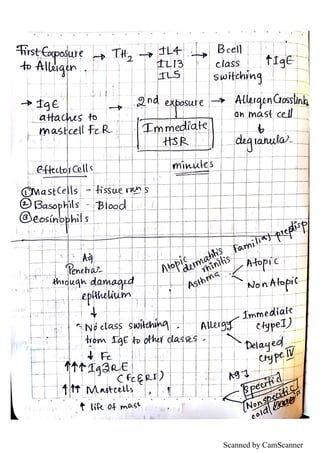 First Exposure → TH2 → IL4 → B cell
to Allergen. IL13 class ↑IgE
IL5 switching
→ IgE → 2nd exposure → Allergen Crosslinks
attaches to on mast cell
mastcell FcR. Immediate ↓
HSR degranula.
effector cells minutes
① Mast Cells - tissue
② Basophils - Blood
③ eosinophils
Ag
Penetra
through damaged
epithelium
↓
No class switching.
from IgE to other classes.
↓ Fc
↑↑↑ IgE
(FcεRI)
↑↑↑ Mastcells
↑ life of mast
Atopic dermatitis
rhinitis
Asthma
Familial predisp
Atopic
Non Atopic
Allergy
Immediate
(type I)
Delayed
(type IV)
Ag
Specific
Nonspecific
cold
Scanned by CamScanner